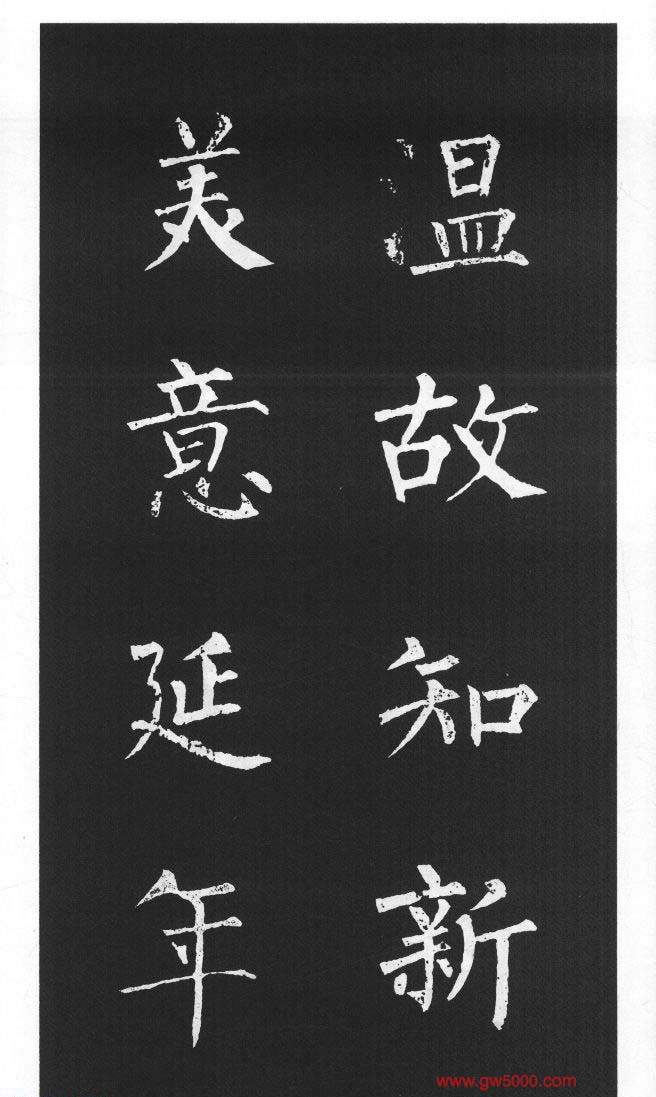 温故知新
美意延年
www.gw5000.com